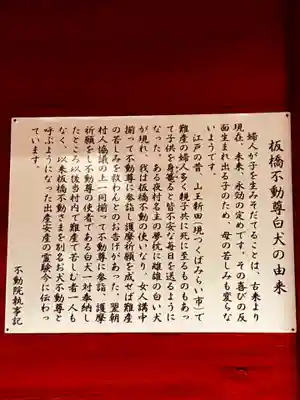 板橋不動尊白犬の由来
婦人が子を生みそだてることは、古来より
現在、未来、永劫の定めです。その喜びの反
面生まれ出る子のため、母の苦しみも変らな
いようです。
江戸の昔、山王新田(現つくばみらい市)で
難産の婦人多く親子共に死に至るものもあっ
て子供を身養ると皆不安な毎日を送るように
なった。ある夜村名主の夢の枕に雌雄の白い犬
が現われ、我は板橋不動の使いなり、女人講中
揃って不動尊に参詣し護摩祈願を成せば難産
の苦しみを救わんとのお告げがあった。翌朝
村人協議の上一同揃って不動尊に参詣、護摩
祈願をし不動尊の使者である白犬一対奉納し
たところ以後当村内で難産で苦しむ者一人も
なく、以来板橋不動さまを別名お犬不動尊と
呼ぶようになった出産安産の霊験今に伝わっ
ています。
不動院執事記